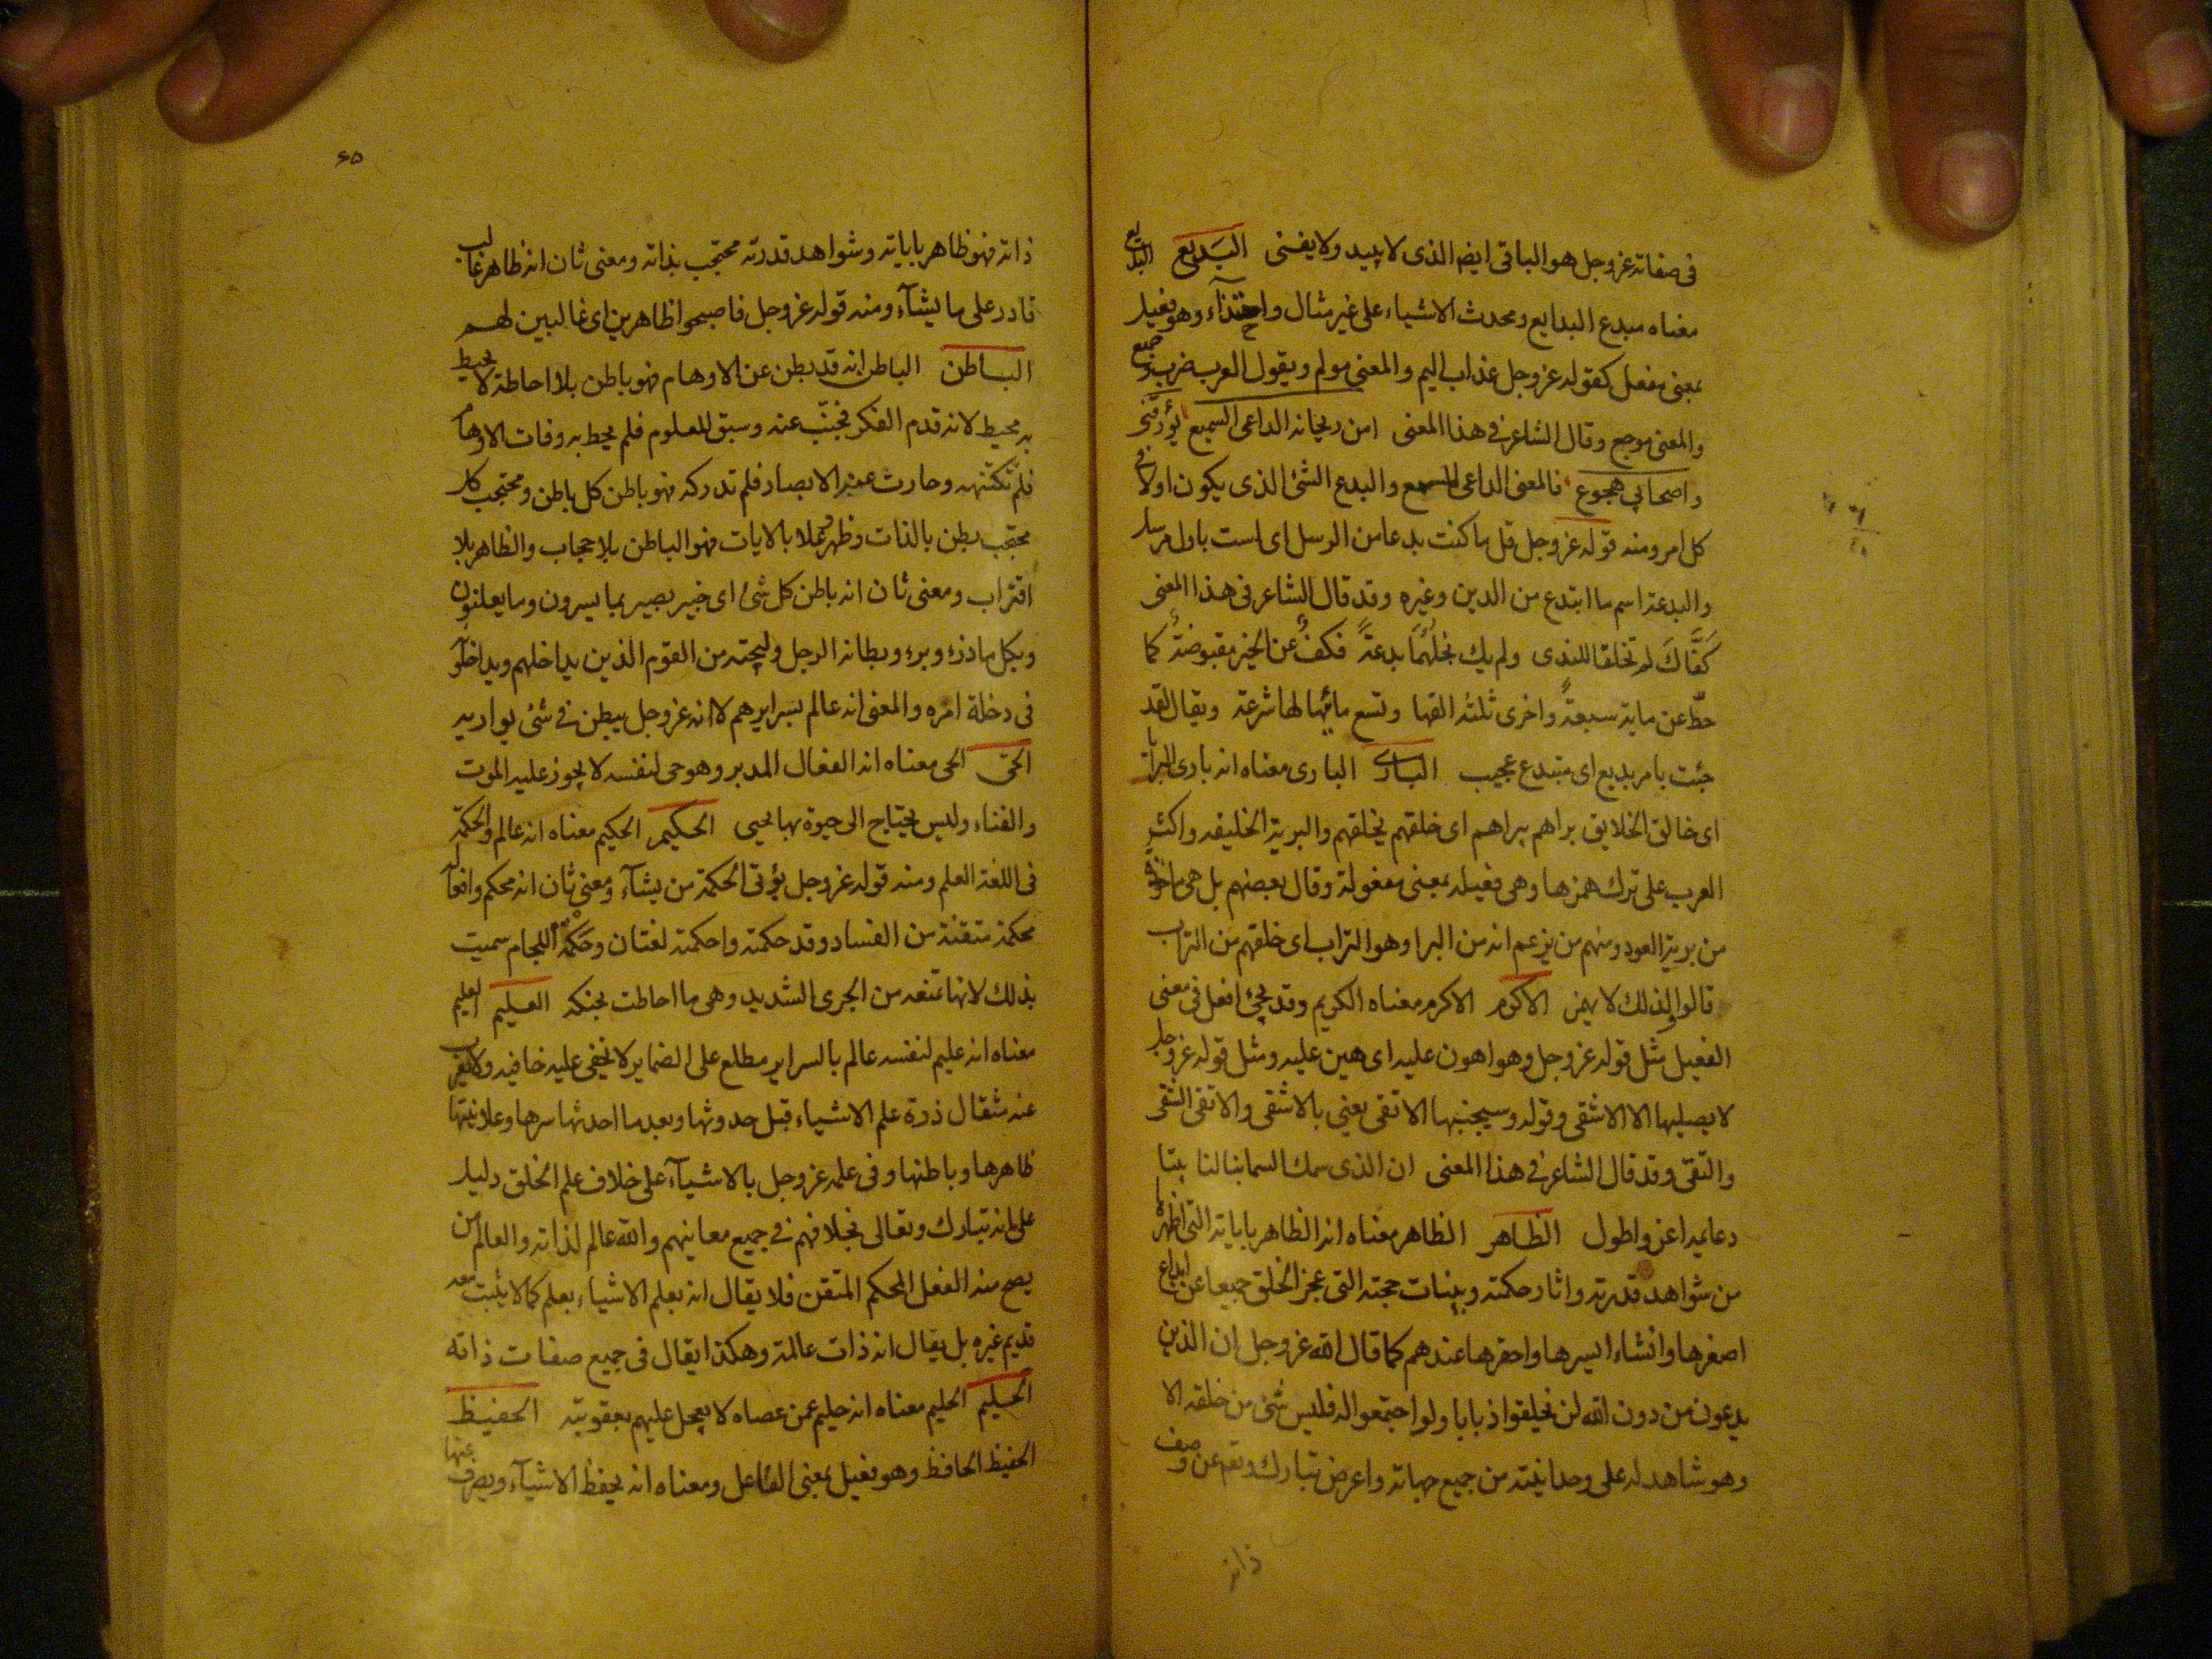 فى صفاته عز وجل هو الباقى ايضا الذى لا يبيد ولا يفنى البديع البديع
معناه مبدع البدايع ومحدث الاشياء على غير مثال واحتذآء وهو فعيل
بمعنى مفعل كقوله عز وجل عذاب اليم والمعنى مولم ويقول العرب ضرب وجيع
والمعنى موجع وقال الشاعر فى هذا المعنى امن ريحانه الداعى السميع يؤرقنى
واصحابى هجوع فالمعنى الداعى المسمع والبدع الشئ الذى يكون اولا فى
كل امر ومنه قوله عز وجل قل ما كنت بدعا من الرسل اى لست باول مرسل
والبدعة اسم ما ابتدع من الدين وغيره وقد قال الشاعر فى هذا المعنى
كفاك لم تخلقا للندى ولم يك بخلهما بدعة فكف عن الخير مقبوضة كما
حط عن ماية سبعة واخرى ثلثة الفها وتسع مائها لها شرعة ويقال لقد
جئت بامر بديع اى مبتدع عجيب البارى البارى معناه انه بارى البرايا
اى خالق الخلايق براهم يبراهم اى خلقهم يخلقهم والبرية الخليقه واكثر
العرب على ترك همزها وهى فعيله بمعنى مفعولة وقال بعضهم بل هى ماخوذة
من برية العود ومنهم من يزعم انه من البرا وهو التراب اى خلقهم من التراب
قالوا لذلك لا يهمز الاكرم الاكرم معناه الكريم وقد يجئ افعل فى معنى
الفعيل مثل قوله عز وجل وهو اهون عليه اى هين عليه ومثل قوله عز وجل
لا يصليها الا الاشقى وقوله وسيجنبها الاتقى يعنى بالاشقى والاتقى الشقى
والتقى وقد قال الشاعر فى هذا المعنى ان الذى سمك السما بنا لنا بيتا
دعايمه اعز واطول الظاهر الظاهر معناه انه الظاهر باياته التى اظهرها
من شواهد قدرته واثار حكمته وبينات حجته التى عجز الخلق جميعا عن ابداع
اصغرها وانشاء ايسرها واحقرها عندهم كما قال الله عز وجل ان الذين
يدعون من دون الله لن يخلقوا ذبابا ولو اجتمعوا له فليس شئ من خلقه الا
وهو شاهد له على وحدانيته من جميع جهاته واعرض تبارك وتعم عن وصف
ذاته
۶۵
ذاته فهو ظاهر باياته وشواهد قدرته محتجب بذاته ومعنى ثان انه ظاهر غالب
قادر على ما يشآء ومنه قوله عز وجل فاصبحوا ظاهرين اى غالبين لهم
الباطن الباطن انه قد بطن عن الاوهام فهو باطن بلا احاطة لا يحيط
به محيط لانه قدم الفكر فجنب عنه وسبق المعلوم فلم يحط به وفات الاوهام
فلم تكتنهه وحارت عنه الابصار فلم تدركه فهو باطن كل باطن ومحتجب كل
محتجب بطن بالذات وظهر وعلا بالايات فهو الباطن بلا حجاب والظاهر بلا
اقتراب ومعنى ثان انه باطن كل شئ اى خبير بصير بما يسرون وما يعلنون
وبكل ما ذرء وبرء وبطانة الرجل وليجته من القوم الذين يداخلهم ويداخلونه
فى دخلة امره والمعنى انه عالم بسرايرهم لا انه عز وجل يبطن فى شئ يواريه
الحى الحى معناه انه الفعال المدبر وهو حى لنفسه لا يجوز عليه الموت
والفناء وليس يحتاج الى حيوة بها يحيى الحكيم الحكيم معناه انه عالم والحكمة
فى اللغة العلم ومنه قوله عز وجل يؤتى الحكمة من يشآء ومعنى ثان انه محكم وافعاله
محكمة متقنة من الفساد وقد حكمته واحكمته لغتان وحكمة اللجام سميت
بذلك لانها تمنعه من الجرى الشديد وهى ما احاطت بحنكه العليم العليم
معناه انه عليم لنفسه عالم بالسراير مطلع على الضماير لا يخفى عليه خافيه ولا يعزب
عنه مثقال ذرة علم الاشياء قبل حدوثها وبعد ما احدثها سرها وعلانيتها
ظاهرها وباطنها وفى علمه عز وجل بالاشيآء على خلاف علم الخلق دليل
على انه تبارك وتعالى بخلافهم فى جميع معانيهم والله عالم لذاته والعالم من
يصح منه الفعل المحكم المتقن فلا يقال انه يعلم الاشياء بعلم كما لا يثبت معه
قديم غيره بل يقال انه ذات عالمة وهكذا يقال فى جميع صفات ذاته
الحليم الحليم معناه انه حليم عمن عصاه لا يعجل عليهم بعقوبته الحفيظ
الحفيظ الحافظ وهو فعيل بمعنى الفاعل ومعناه انه يحفظ الاشيآء ويصرف عنها